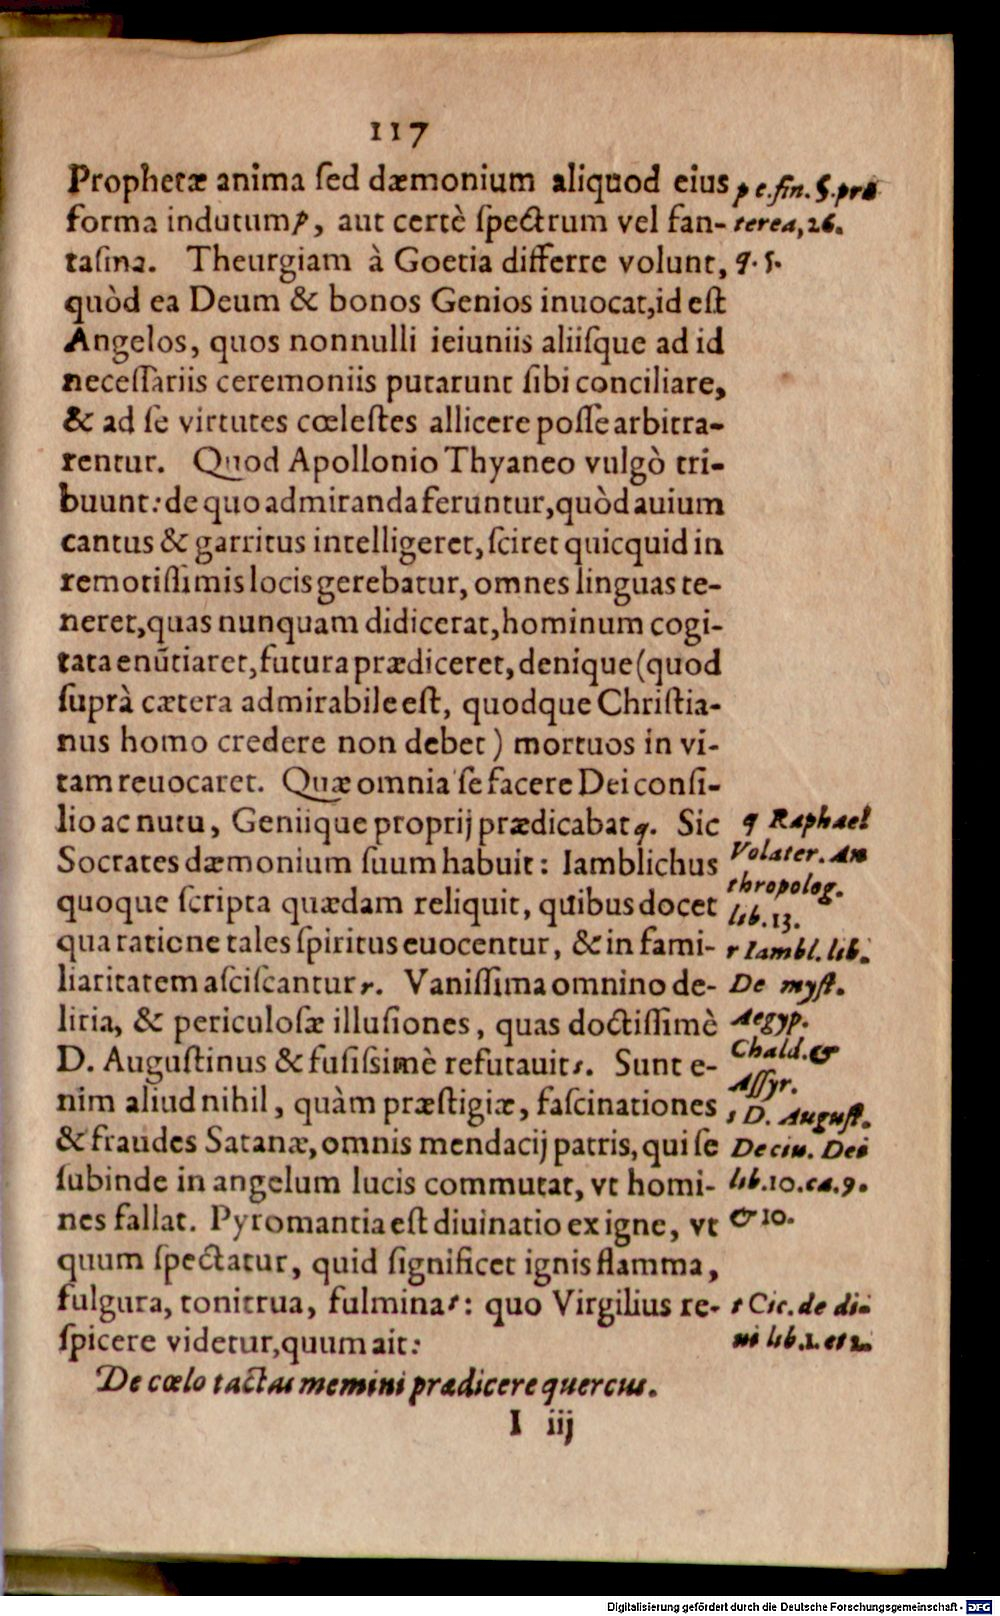 117
Prophetæ anima ſed dæmonium aliquod eius
forma indutum p, aut certè ſpectrum vel fan-
taſma. Theurgiam à Goetia differre volunt,
quòd ea Deum & bonos Genios inuocat, id eſt
Angelos, quos nonnulli ieiuniis aliiſque ad id
neceſſariis ceremoniis putarunt ſibi conciliare,
& ad ſe virtutes cœleſtes allicere poſſe arbitra-
rentur. Quod Apollonio Thyaneo vulgò tri-
buunt: de quo admiranda feruntur, quòd auium
cantus & garritus intelligeret, ſciret quicquid in
remotiſſimis locis gerebatur, omnes linguas te-
neret, quas nunquam didicerat, hominum cogi-
tata enũtiaret, futura prædiceret, denique (quod
ſuprà cætera admirabile eſt, quodque Chriſtia-
nus homo credere non debet) mortuos in vi-
tam reuocaret. Quæ omnia ſe facere Dei conſi-
lio ac nutu, Geniique proprij prædicabat q. Sic
Socrates dæmonium ſuum habuit: Iamblichus
quoque ſcripta quædam reliquit, quibus docet
qua ratione tales ſpiritus euocentur, & in fami-
liaritatem aſciſcantur r. Vaniſſima omnino de-
liria, & periculoſæ illuſiones, quas doctiſſimè
D. Auguſtinus & fuſiſsimè refutauit s. Sunt e-
nim aliud nihil, quàm præſtigiæ, faſcinationes
& fraudes Satanæ, omnis mendacij patris, qui ſe
ſubinde in angelum lucis commutat, vt homi-
nes fallat. Pyromantia eſt diuinatio ex igne, vt
quum ſpectatur, quid ſignificet ignis flamma,
fulgura, tonitrua, fulmina t: quo Virgilius re-
ſpicere videtur, quum ait:
De cœlo tactas memini prædicere quercus.
I iij
p c. fin. §. præ
terea, 26.
q. 5.
q Raphael
Volater. An
thropolog.
lib. 13.
r Iambl. lib.
De myſt.
Aegyp.
Chald. &
Aſſyr.
s D. Auguſt.
De ciu. Dei
lib. 10. ca. 9.
& 10.
t Cic. de di-
ui lib. 1. et 2.
Digitalisierung gefördert durch die Deutsche Forschungsgemeinschaft - DFG